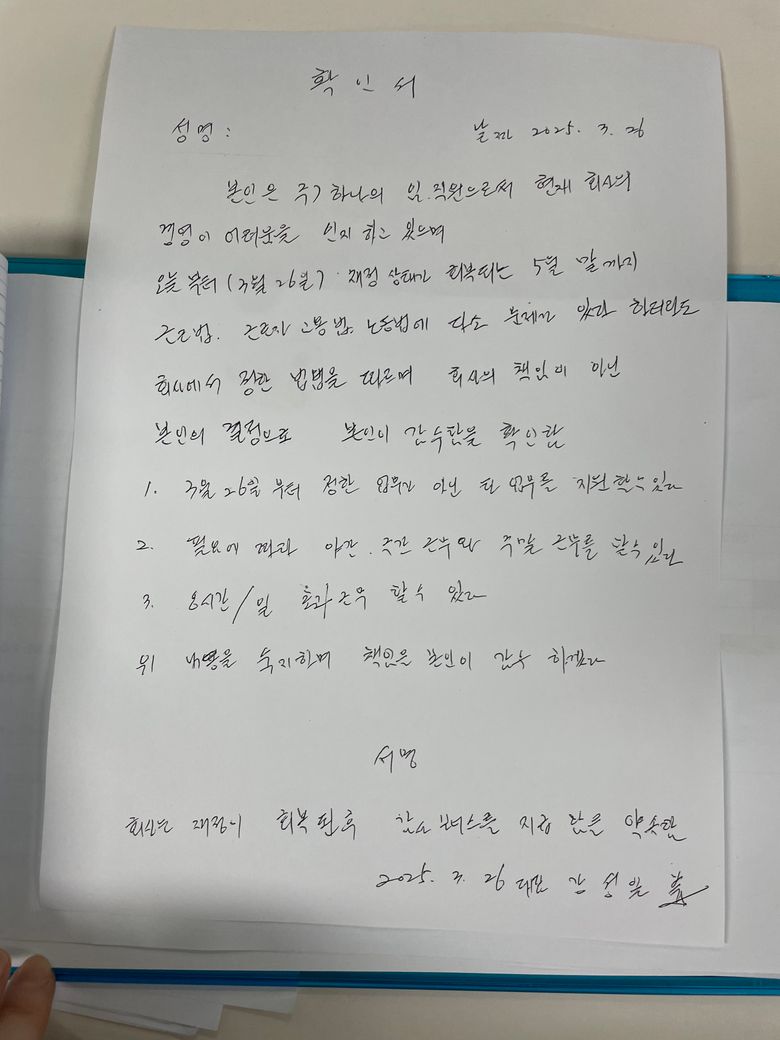 확인서
성명: 날짜 2025. 3. 26
본인은 주) 하나의 임.직원으로써 현재 회사의
경영이 어려움을 인지 하고 있으며
오늘 부터 (3월 26일) 재정 상태가 회복되는 5월 말 까지
근로법. 근로자 고용법, 노동법에 다소 문제가 있다 하더라도
회사에서 정한 방법을 따르며 회사의 책임이 아닌
본인의 결정으로 본인이 감수함을 확인함
1. 3월 26일 부터 정한 업무가 아닌 타 업무를 지원 할수 있다
2. 필요에 따라 야간. 주간 근무와 주말 근무를 할수 있다
3. 8시간/일 초과근무 할수 있다
위 내용을 숙지하며 책임을 본인이 감수 하겠다
서명
회사는 재정이 회복된 후 감사 보너스를 지급 함을 약속함
2025. 3. 26 대표 김성일